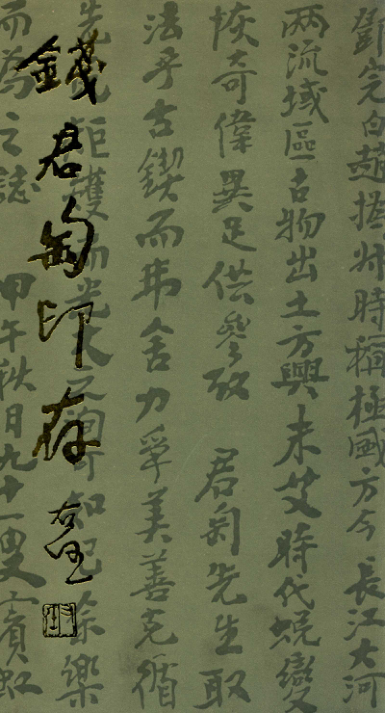 鄧完白趙撝叔時稱極盛方今長江大河
兩流域區古物出土方興未艾時代蛻變
恢奇偉異足供參攷 君匋先生取
法乎古鍥而弗舍力爭美善克循
先矩矱而光大知已余樂
而為之誌 甲午秋日九十一叟賓虹
錢君匋印存